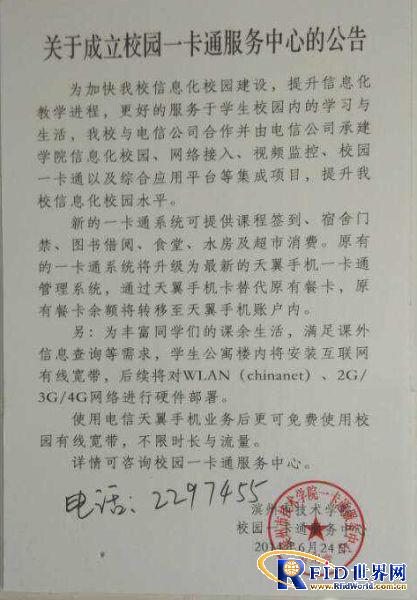 关于成立校园一卡通服务中心的公告
为加快我校信息化校园建设，提升信息化
教学进程，更好的服务于学生校园内的学习与
生活，我校与电信公司合作并由电信公司承建
学院信息化校园、网络接入、视频监控、校园
一卡通以及综合应用平台等集成项目，提升我
校信息化校园水平。
新的一卡通系统可提供课程签到、宿舍门
禁、图书借阅、食堂、水房及超市消费。原有
的一卡通系统将升级为最新的天翼手机一卡通
管理系统，通过天翼手机卡替代原有餐卡，原
有餐卡余额将转移至天翼手机账户内。
另：为丰富同学们的课余生活，满足课外
信息查询等需求，学生公寓楼内将安装互联网
有线宽带，后续将对WLAN（chinanet）、2G/
3G/4G网络进行硬件部署。
使用电信天翼手机业务后更可免费使用校
园有线宽带，不限时长与流量。
详情可咨询校园一卡通服务中心。
电话：2297455
滨州 技术学
校园一卡通服务中
6月24日
RFID世界网
RFIDWorld.com.cn